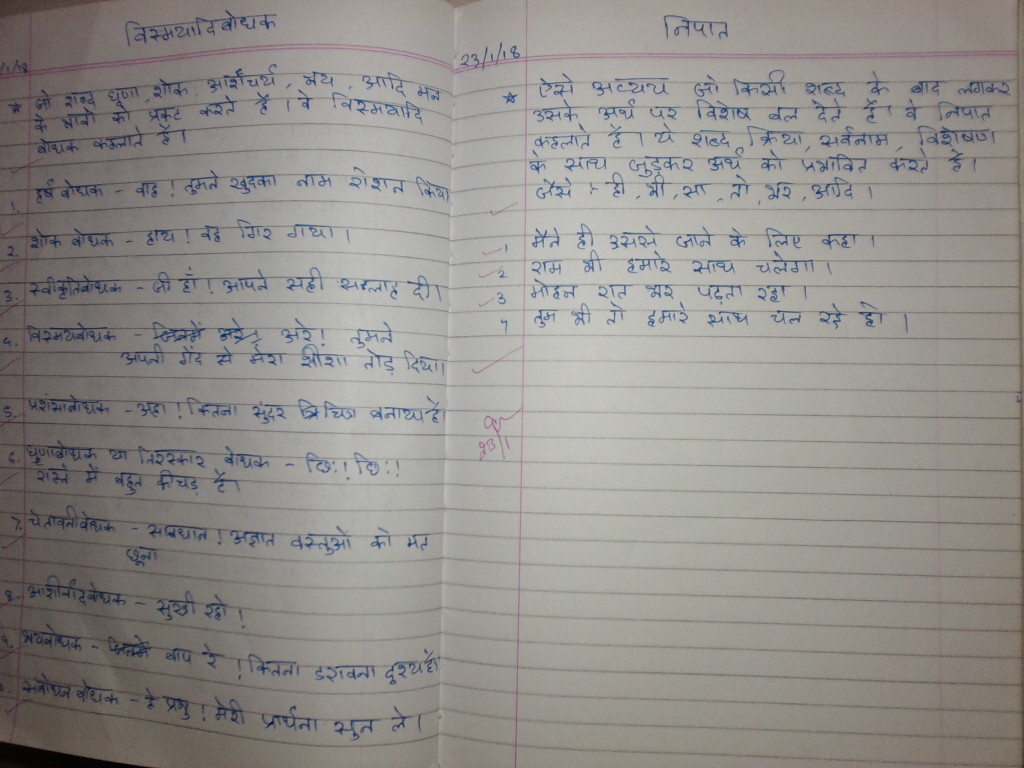 विस्मयादिबोधक
/1/18
* जो शब्द घृणा, शोक, आर्श्चर्य, भय, आदि मन
के भावों को प्रकट करते हैं। वे विस्मयादि
बोधक कहलाते हैं।
1. हर्ष बोधक - वाह! तुमने खुदका नाम रोशन किया
2. शोक बोधक - हाय! वह गिर गया।
3. स्वीकृतिबोधक - जी हाँ! आपने सही सलाह दी।
4. विस्मयबोधक - अरे! तुमने
अपनी गेंद से मेरा शीशा तोड़ दिया।
5. प्रशंसाबोधक - अहा! कितना सुंदर चित्र बनाया है
6. घृणाबोधक या तिरस्कार बोधक - छिः! छिः!
रास्ते में बहुत कीचड़ है।
7. चेतावनीबोधक - सावधान! अज्ञात वस्तुओं को मत
छूना
8. आशीर्वादबोधक - सुखी रहो!
9. भयबोधक - बाप रे! कितना डरावना दुश्य है।
संबोधन बोधक - हे प्रभु! मेरी प्रार्थना सुन ले।
निपात
23/1/18
* ऐसे अव्यय जो किसी शब्द के बाद लगकर
उसके अर्थ पर विशेष बल देते हैं। वे निपात
कहलाते हैं। ये शब्द क्रिया, सर्वनाम, विशेषण
के साथ जुड़कर अर्थ को प्रभावित करते हैं।
जैसे :- ही, भी, सा, तो, भर, आदि।
1 मैने ही उससे जाने के लिए कहा।
2 राम भी हमारे साथ चलेगा।
3 मोहन रात भर पढ़ता रहा।
4 तुम भी तो हमारे साथ चल रहे हो।
23/1